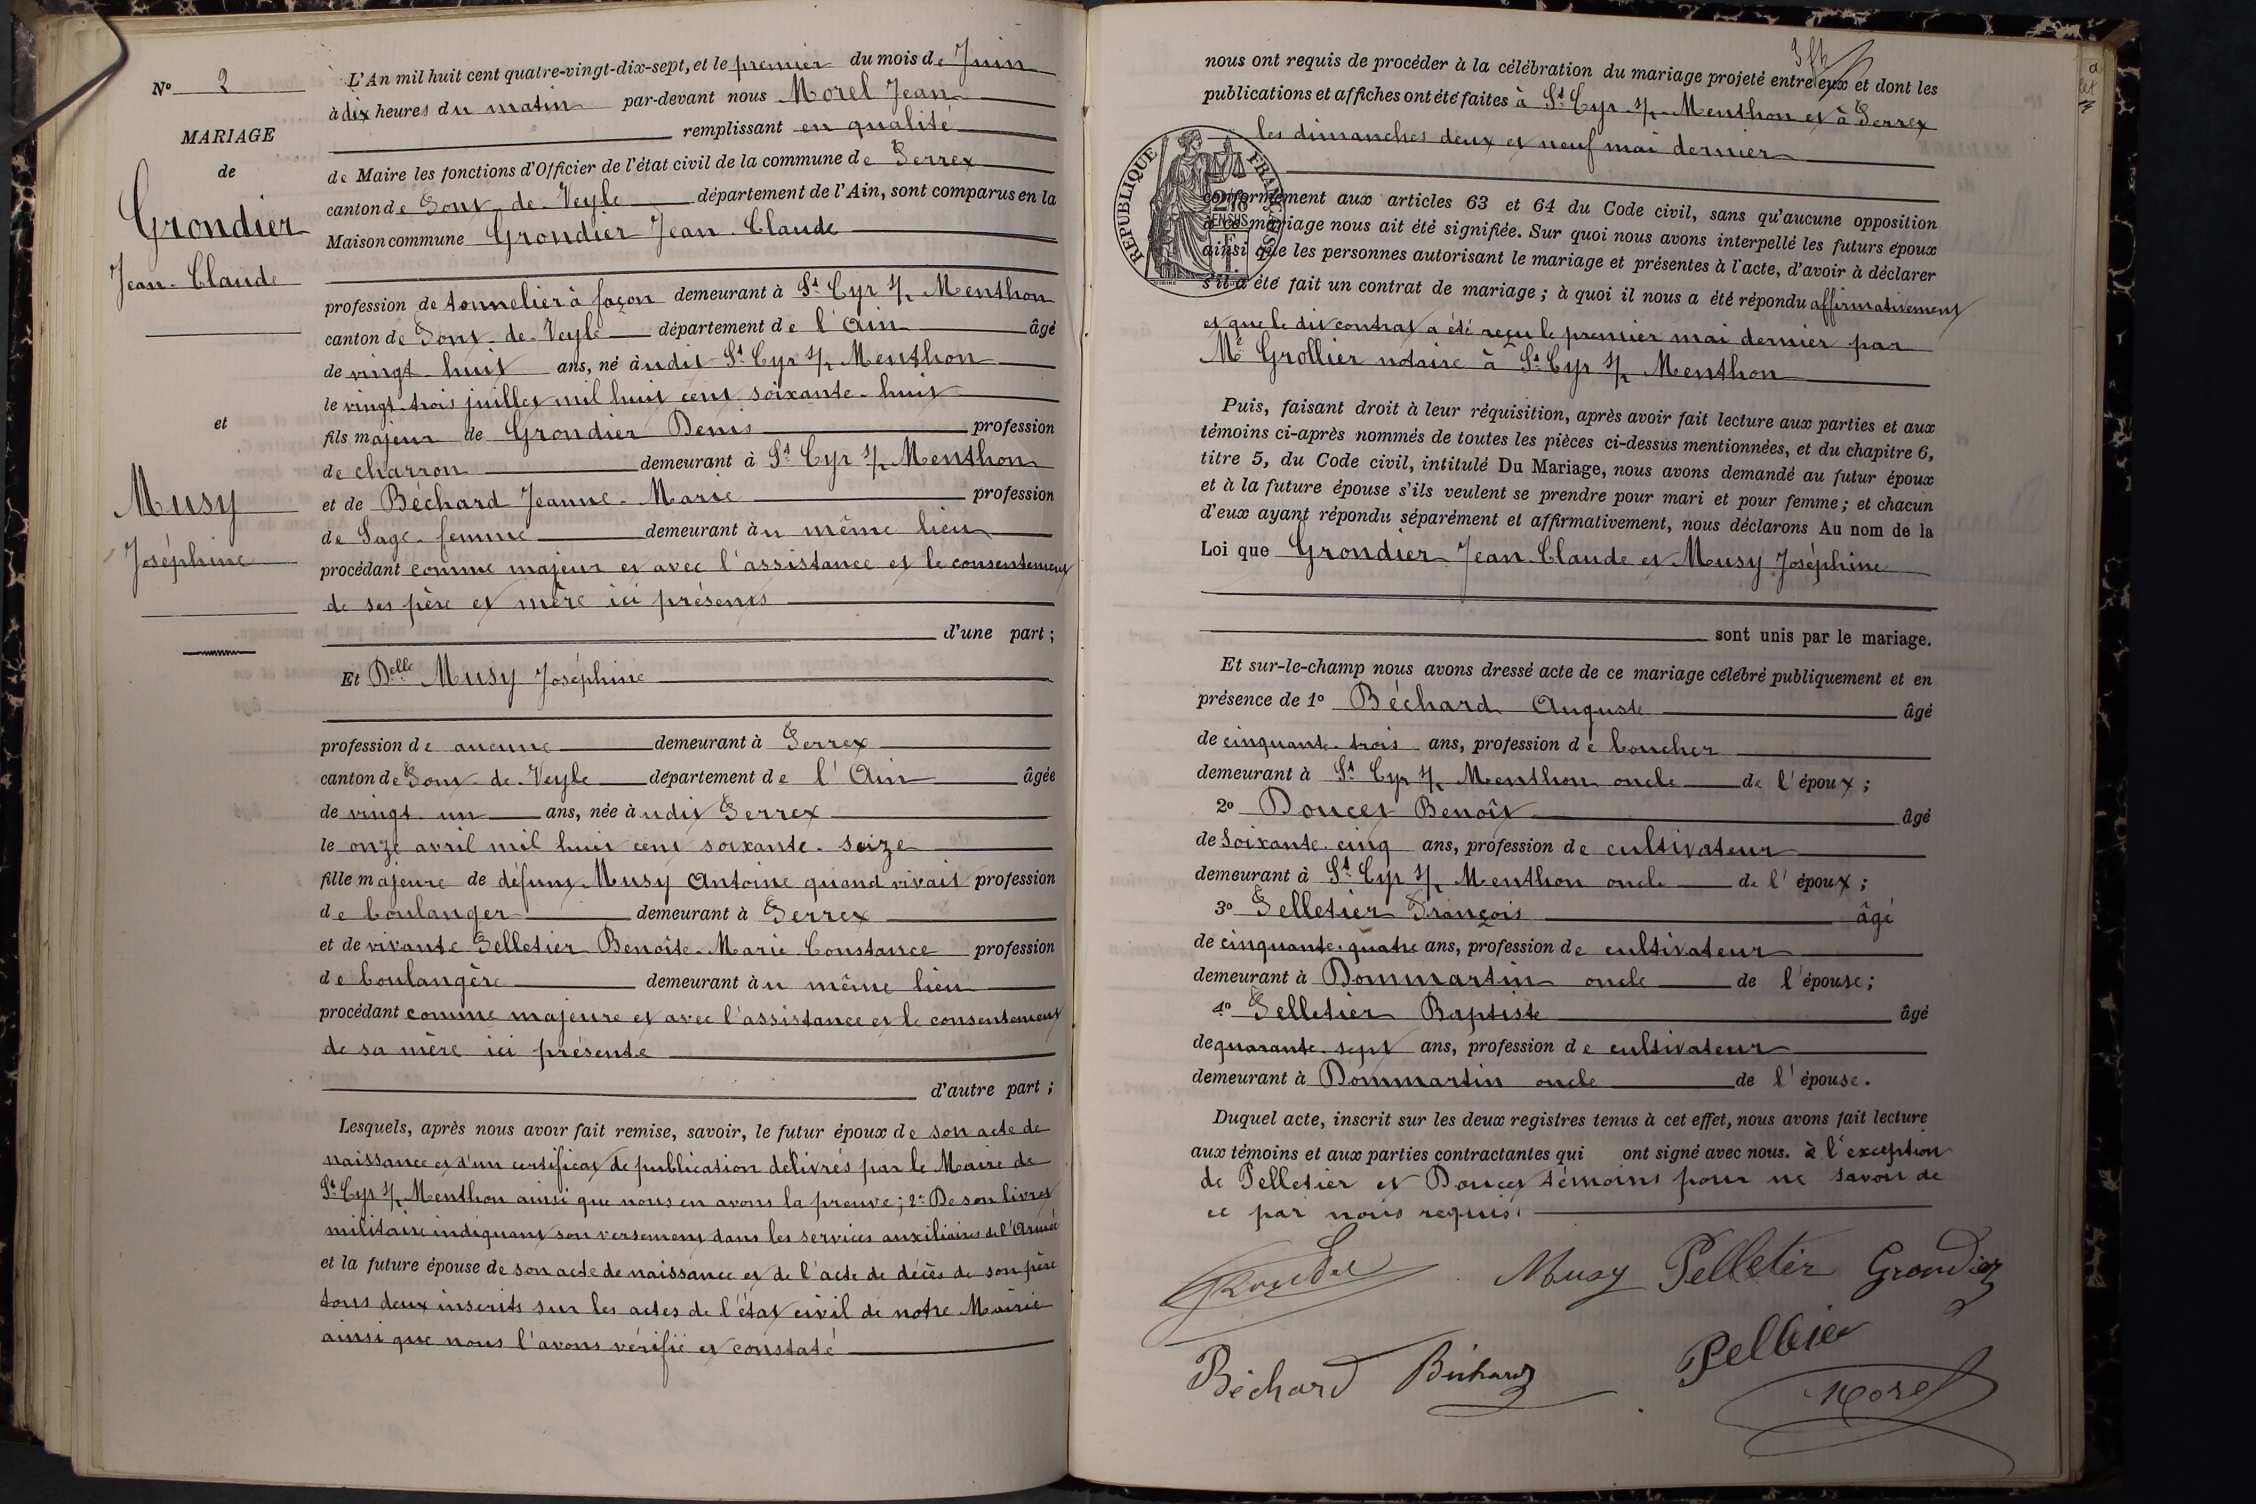 N° 2
MARIAGE
de
Grondier
Jean-Claude
et
Musy
Joséphine
L'An mil huit cent quatre-vingt-dix-sept, et le premier du mois de Juin
à dix heures du matin par-devant nous Morel Jean
remplissant en qualité
de Maire les fonctions d'Officier de l'état civil de la commune de Perrex
canton de Pont-de-Veyle département de l'Ain, sont comparus en la
Maison commune Grondier Jean-Claude
profession de tonnelier à façon demeurant à St Cyr s/ Menthon
canton de Pont-de-Veyle département de l'Ain âgé
de vingt-huit ans, né àudit St Cyr s/ Menthon
le vingt-trois juillet mil huit cent soixante-huit
fils majeur de Grondier Denis profession
de charron demeurant à St Cyr s/ Menthon
et de Béchard Jeanne-Marie profession
de Sage-femme demeurant àu même lieu
procédant comme majeur et avec l'assistance et le consentement
de ses père et mère ici présents
d'une part ;
Et Delle Musy Joséphine
profession de aucune demeurant à Perrex
canton de Pont-de-Veyle département de l'Ain âgée
de vingt-un ans, née àudit Perrex
le onze avril mil huit cent soixante-seize
fille majeure de défunt Musy Antoine quand vivait profession
de boulanger demeurant à Perrex
et de vivante Pelletier Benoîte-Marie Constance profession
de boulangère demeurant àu même lieu
procédant comme majeure et avec l'assistance et le consentement
de sa mère ici présente
d'autre part ;
Lesquels, après nous avoir fait remise, savoir, le futur époux de son acte de
naissance et d'un certificat de publication délivrés par le Maire de
St Cyr s/ Menthon ainsi que nous en avons la preuve ; 2° De son livret
militaire indiquant son versement dans les services auxiliaires de l'Armée
et la future épouse de son acte de naissance et de l'acte de décès de son père
tous deux inscrits sur les actes de l'état civil de notre Mairie
ainsi que nous l'avons vérifié et constaté
nous ont requis de procéder à la célébration du mariage projeté entre eux et dont les
publications et affiches ont été faites à St Cyr s/ Menthon et à Perrex
les dimanches deux et neuf mai dernier
RÉPUBLIQUE FRANÇAISE
conformément aux articles 63 et 64 du Code civil, sans qu'aucune opposition
à ce mariage nous ait été signifiée. Sur quoi nous avons interpellé les futurs époux
ainsi que les personnes autorisant le mariage et présentes à l'acte, d'avoir à déclarer
s'il a été fait un contrat de mariage ; à quoi il nous a été répondu affirmativement
et que le dit contrat a été reçu le premier mai dernier par
Me Grollier notaire à St Cyr s/ Menthon
Puis, faisant droit à leur réquisition, après avoir fait lecture aux parties et aux
témoins ci-après nommés de toutes les pièces ci-dessus mentionnées, et du chapitre 6,
titre 5, du Code civil, intitulé Du Mariage, nous avons demandé au futur époux
et à la future épouse s'ils veulent se prendre pour mari et pour femme ; et chacun
d'eux ayant répondu séparément et affirmativement, nous déclarons Au nom de la
Loi que Grondier Jean-Claude et Musy Joséphine
sont unis par le mariage.
Et sur-le-champ nous avons dressé acte de ce mariage célébré publiquement et en
présence de 1° Béchard Auguste âgé
de cinquante-trois ans, profession de boucher
demeurant à St Cyr s/ Menthon oncle de l'époux ;
2° Doucet Benoît âgé
de soixante-cinq ans, profession de cultivateur
demeurant à St Cyr s/ Menthon oncle de l'époux ;
3° Pelletier François âgé
de cinquante-quatre ans, profession de cultivateur
demeurant à Dommartin oncle de l'épouse ;
4° Pelletier Baptiste âgé
de quarante-sept ans, profession de cultivateur
demeurant à Dommartin oncle de l'épouse.
Duquel acte, inscrit sur les deux registres tenus à cet effet, nous avons fait lecture
aux témoins et aux parties contractantes qui ont signé avec nous. à l'exception
de Pelletier et Doucet témoins pour ne savoir de
ce par nous requis.
Musy Pelletier Grondier
Béchard Béchard Pelletier
Morel